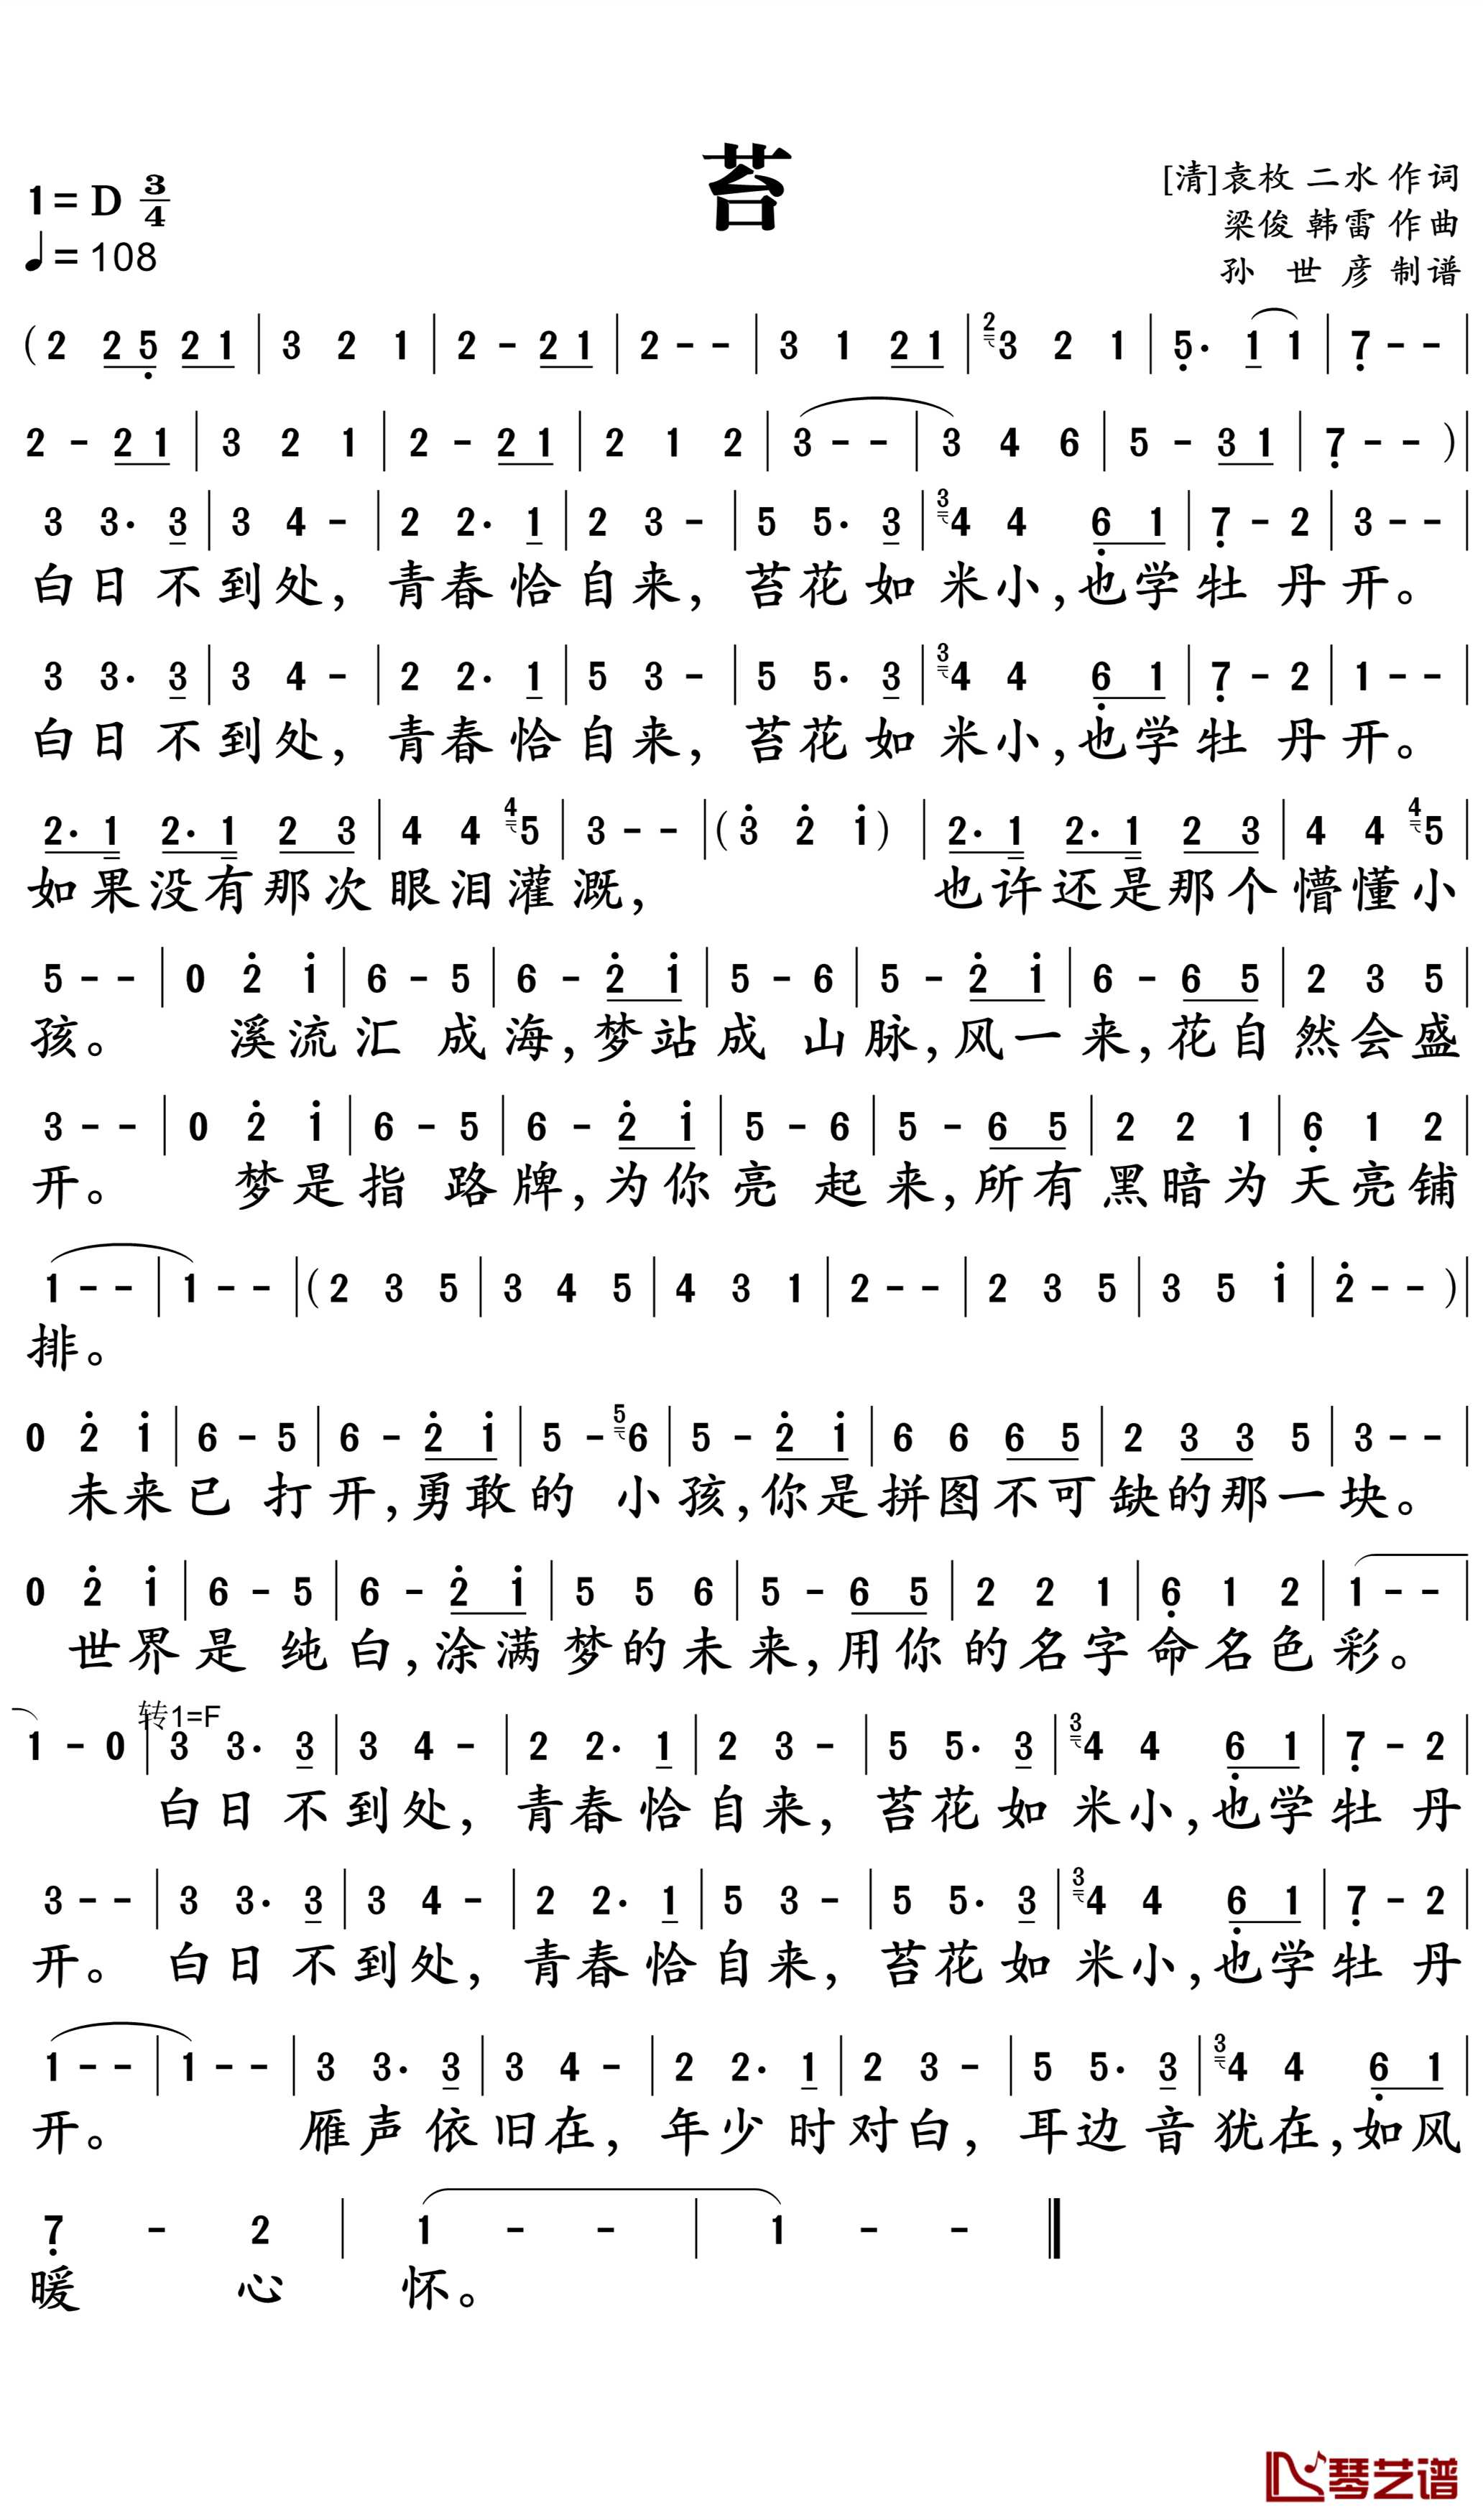 苔
1=D 3/4
♩=108
[清]袁枚 二水 作词
梁俊 韩雷 作曲
孙 世 彦 制谱
(2 2 5 2 1 | 3 2 1 | 2 - 2 1 | 2 - - | 3 1 2 1 | 2 3 2 1 | 5· 1 1 | 7 - - |
2 - 2 1 | 3 2 1 | 2 - 2 1 | 2 1 2 | 3 - - | 3 4 6 | 5 - 3 1 | 7 - - )|
3 3· 3 | 3 4 - | 2 2· 1 | 2 3 - | 5 5· 3 | 3 4 4 6 1 | 7 - 2 | 3 - - |
白日不到处，青春恰自来，苔花如米小，也学牡丹开。
3 3· 3 | 3 4 - | 2 2· 1 | 5 3 - | 5 5· 3 | 3 4 4 6 1 | 7 - 2 | 1 - - |
白日不到处，青春恰自来，苔花如米小，也学牡丹开。
2· 1 2· 1 2 3 | 4 4 4 5 | 3 - - |(3 2 1) | 2· 1 2· 1 2 3 | 4 4 4 5 |
如果没有那次眼泪灌溉， 也许还是那个懵懂小
5 - - | 0 2 1 | 6 - 5 | 6 - 2 1 | 5 - 6 | 5 - 2 1 | 6 - 6 5 | 2 3 5 |
孩。 溪流汇成海，梦站成山脉，风一来，花自然会盛
3 - - | 0 2 1 | 6 - 5 | 6 - 2 1 | 5 - 6 | 5 - 6 5 | 2 2 1 | 6 1 2 |
开。 梦是指路牌，为你亮起来，所有黑暗为天亮铺
1 - - | 1 - - |(2 3 5 | 3 4 5 | 4 3 1 | 2 - - | 2 3 5 | 3 5 1 | 2 - - )|
排。
0 2 1 | 6 - 5 | 6 - 2 1 | 5 - 5 6 | 5 - 2 1 | 6 6 6 5 | 2 3 3 5 | 3 - - |
未来已打开，勇敢的小孩，你是拼图不可缺的那一块。
0 2 1 | 6 - 5 | 6 - 2 1 | 5 5 6 | 5 - 6 5 | 2 2 1 | 6 1 2 | 1 - - |
世界是纯白，涂满梦的未来，用你的名字命名色彩。
转1=F
1 - 0 | 3 3· 3 | 3 4 - | 2 2· 1 | 2 3 - | 5 5· 3 | 3 4 4 6 1 | 7 - 2 |
白日不到处，青春恰自来，苔花如米小，也学牡丹
3 - - | 3 3· 3 | 3 4 - | 2 2· 1 | 5 3 - | 5 5· 3 | 3 4 4 6 1 | 7 - 2 |
开。白日不到处，青春恰自来，苔花如米小，也学牡丹
1 - - | 1 - - | 3 3· 3 | 3 4 - | 2 2· 1 | 2 3 - | 5 5· 3 | 3 4 4 6 1 |
开。 雁声依旧在，年少时对白，耳边音犹在，如风
7 - 2 | 1 - - | 1 - - ‖
暖心怀。
琴艺谱